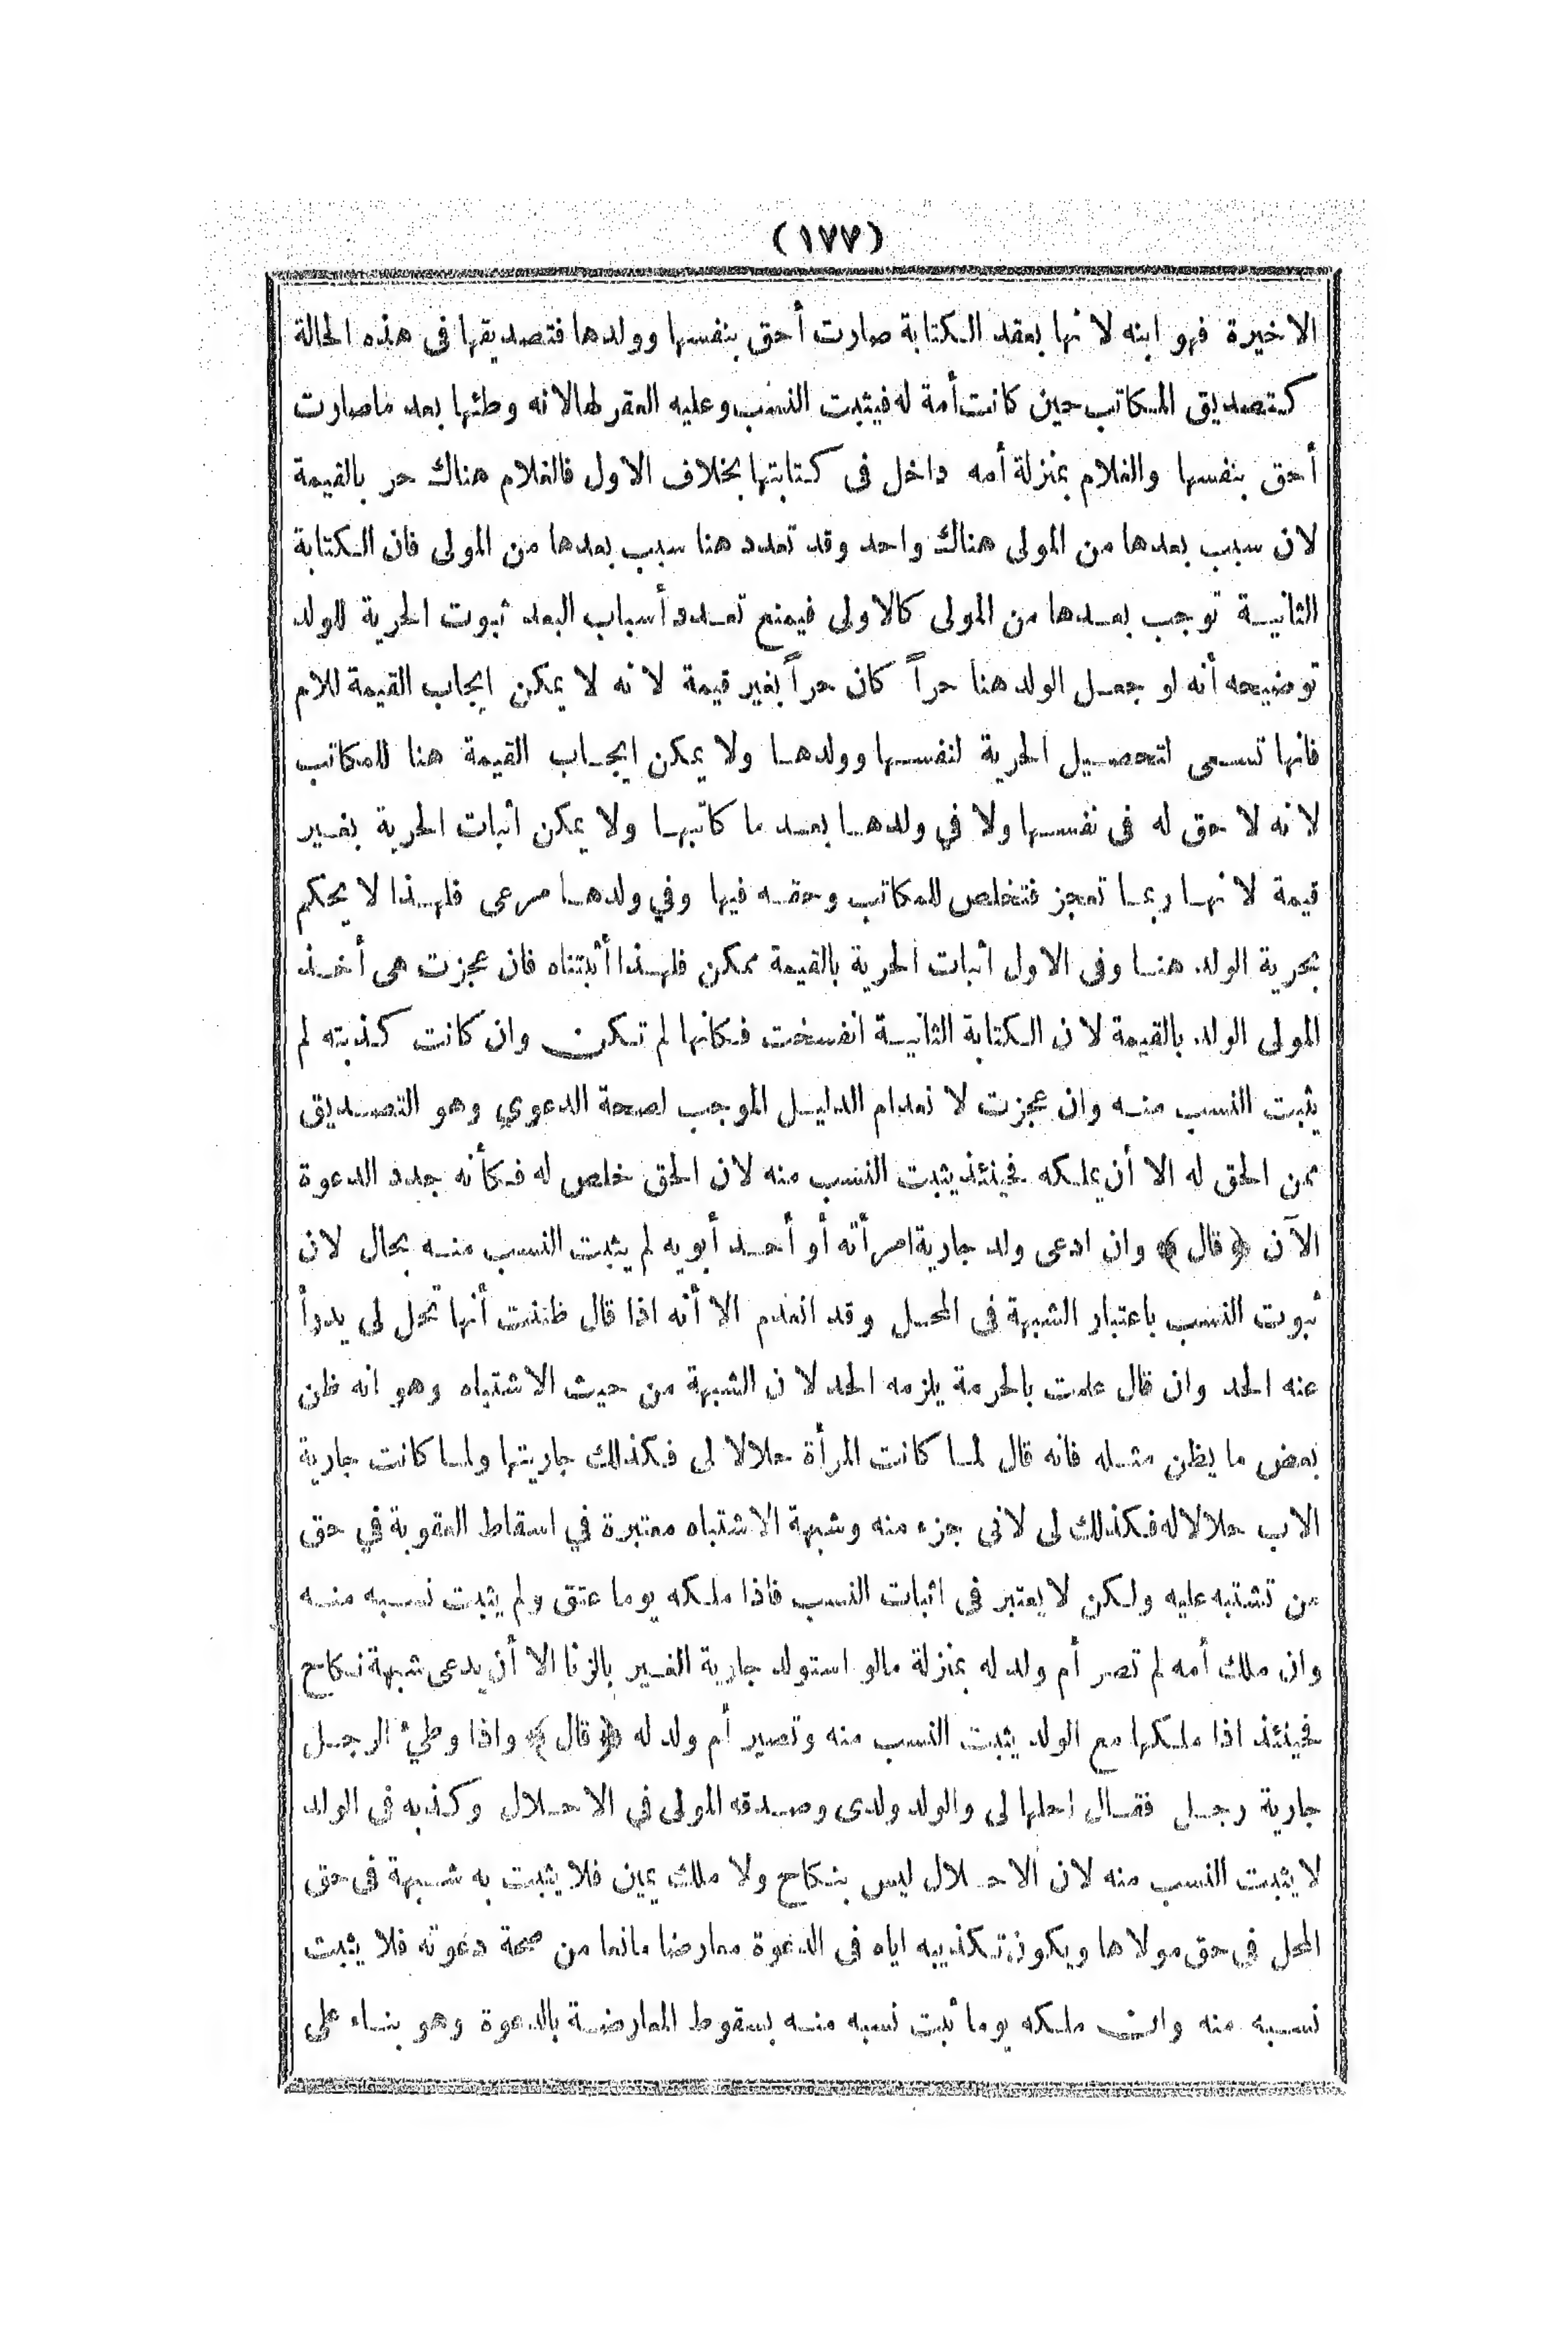 (١٧٧)
الاخيرة فهو ابنه لانها بعقد الكتابة صارت أحق بنفسها وولدها فتصديقها فى هذه الحالة
كتصديق المكاتب حين كانت أمة له فيثبت النسب وعليه العقر لها لانه وطئها بعد ماصارت
أحق بنفسها والغلام بمنزلة أمه داخل فى كتابتها بخلاف الاول فالغلام هناك حر بالقيمة
لان سبب بعدها من المولى هناك واحد وقد تعدد هنا سبب بعدها من المولى فان الكتابة
الثانية توجب بعدها من المولى كالاولى فيمنع تعدد أسباب البعد ثبوت الحرية للولد
توضيحه أنه لو جعل الولد هنا حراً كان حراً بغير قيمة لانه لا يمكن ايجاب القيمة للام
فانها تسعى لتحصيل الحرية لنفسها وولدها ولا يمكن ايجاب القيمة هنا للمكاتب
لانه لا حق له فى نفسها ولا في ولدها بعد ما كاتبها ولا يمكن اثبات الحرية بغير
قيمة لانها ربما تعجز فتخلص للمكاتب وحقه فيها وفي ولدها مرعى فلهذا لا يحكم
بحرية الولد هنا وفى الاول اثبات الحرية بالقيمة ممكن فلهذا أثبتناه فان عجزت هى أخذ
المولى الولد بالقيمة لان الكتابة الثانية انفسخت فكانها لم تكن وان كانت كذبته لم
يثبت النسب منه وان عجزت لانعدام الدليل الموجب لصحة الدعوي وهو التصديق
ممن الحق له الا أن يملكه فحينئذ يثبت النسب منه لان الحق خلص له فكأنه جدد الدعوة
الآن ﴿قال﴾ وان ادعى ولد جارية امرأته أو أحد أبويه لم يثبت النسب منه بحال لان
ثبوت النسب باعتبار الشبهة فى المحل وقد انعدم الا أنه اذا قال ظننت أنها تحل لى يدرأ
عنه الحد وان قال علمت بالحرمة يلزمه الحد لان الشبهة من حيث الاشتباه وهو انه ظن
بعض ما يظن مثله فانه قال لما كانت المرأة حلالا لى فكذلك جاريتها ولما كانت جارية
الاب حلالا له فكذلك لى لانى جزء منه وشبهة الاشتباه معتبرة في اسقاط العقوبة في حق
من تشتبه عليه ولكن لا يعتبر فى اثبات النسب فاذا ملكه يوما عتق ولم يثبت نسبه منه
وان ملك أمه لم تصر أم ولد له بمنزلة مالو استولد جارية الغير بالزنا الا أن يدعى شبهة نكاح
فحينئذ اذا ملكها مع الولد يثبت النسب منه وتصير أم ولد له ﴿قال﴾ واذا وطئ الرجل
جارية رجل فقال احلها لى والولد ولدى وصدقه المولى في الاحلال وكذبه فى الولد
لا يثبت النسب منه لان الاحلال ليس بنكاح ولا ملك يمين فلا يثبت به شبهة فى حق
المحل فى حق مولاها ويكون تكذيبه اياه فى الدعوة معارضا مانعا من صحة دعوته فلا يثبت
نسبه منه وان ملكه يوما ثبت نسبه منه بسقوط المعارضة بالدعوة وهو بناء على